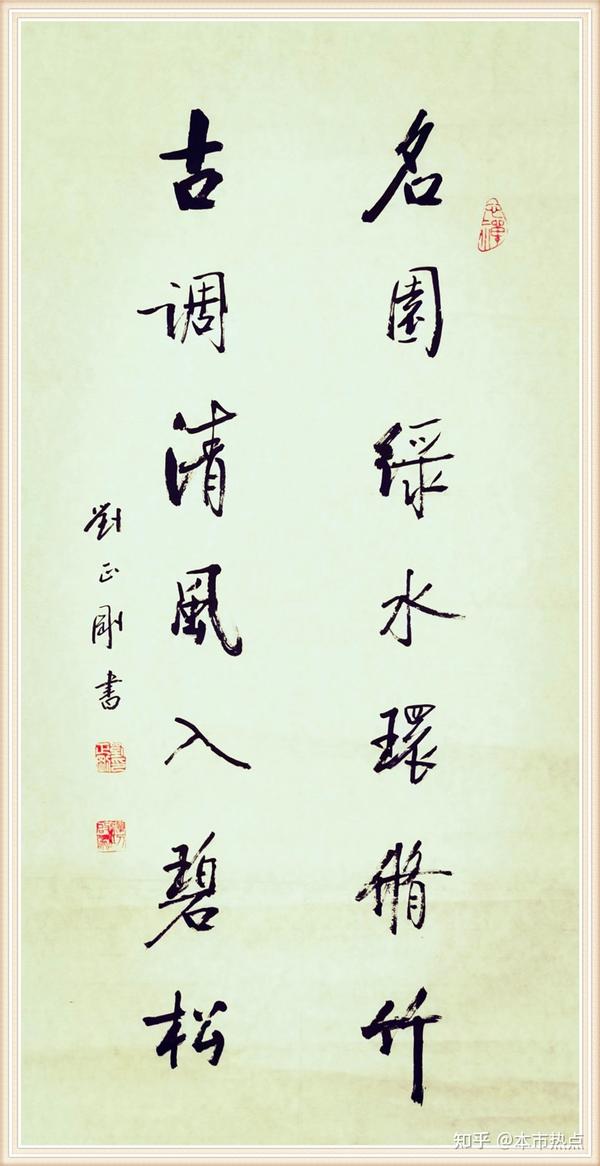 名園綠水環脩竹
古調清風入碧松
劉正剛書
知乎 @本市热点